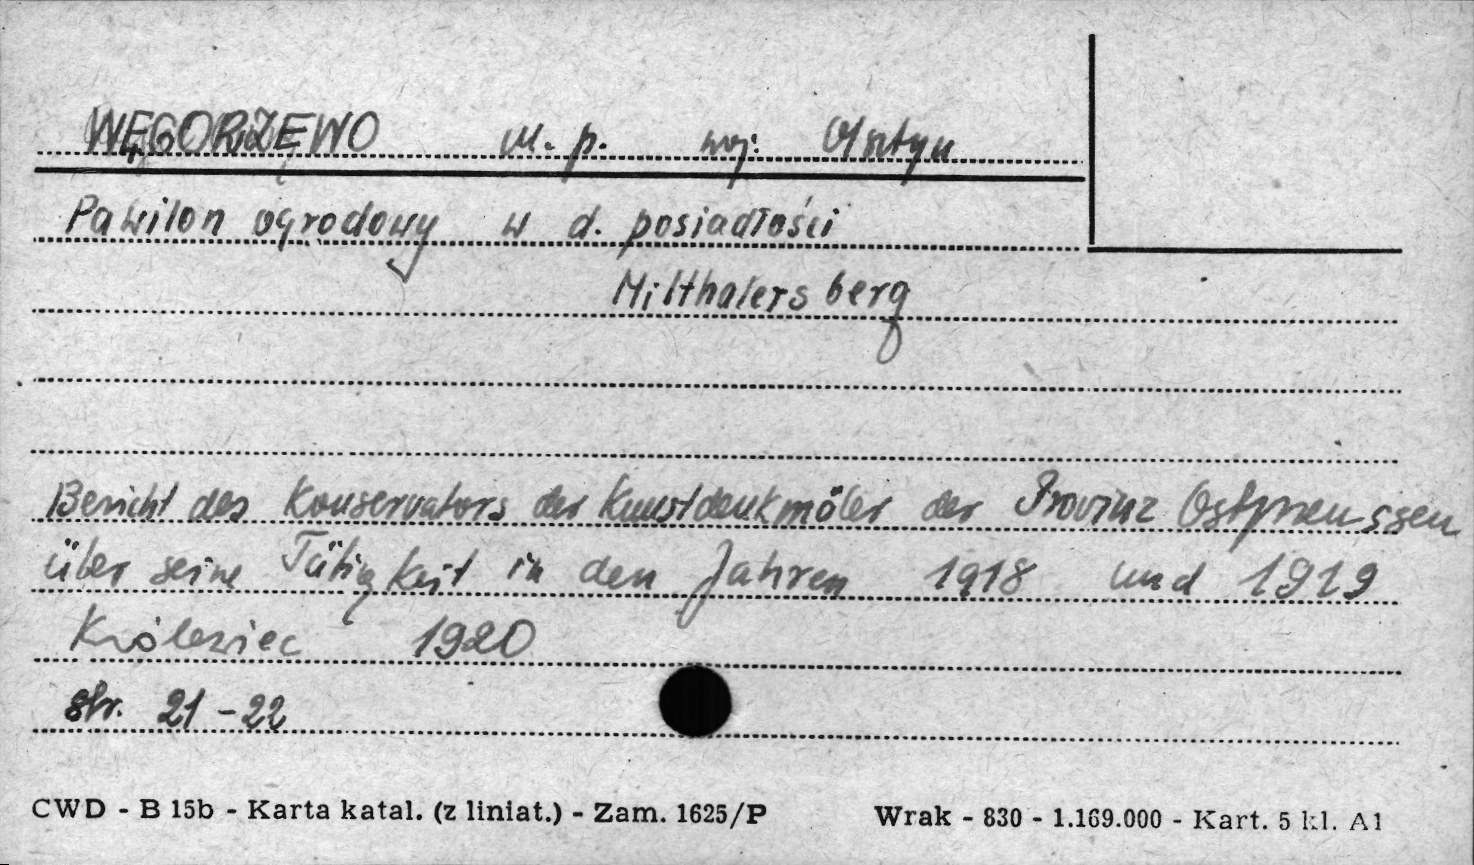 WĘGORZEWO m. p. woj: Olsztyn
Pawilon ogrodowy w d. posiadłości
Milthalersberg
Bericht des Konservators der Kunstdenkmäler der Provinz Ostpreussen
über seine Tätigkeit in den Jahren 1918 und 1919
Królewiec 1920
str. 21-22
CWD - B 15b - Karta katal. (z liniat.) - Zam. 1625/P Wrak - 830 - 1.169.000 - Kart. 5 kl. A1